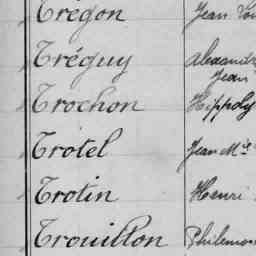 Trégon Jean
Tréguy
Jean
Trochon Hippoly
Trotel Jean Mie
Trotin Henri
Trouillon Philemon